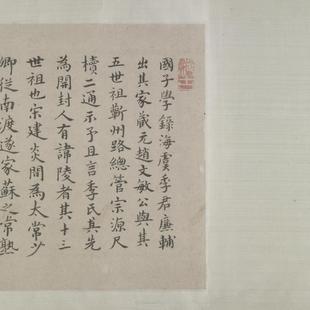 國子學錄海虞季君廉輔
出其家藏元趙文敏公與其
五世祖蘄州路總管宗源尺
牘二通示予且言季氏其先
為開封人有諱陵者其十三
世祖也宗建炎間為太常少
卿從南渡遂家蘇之常熟